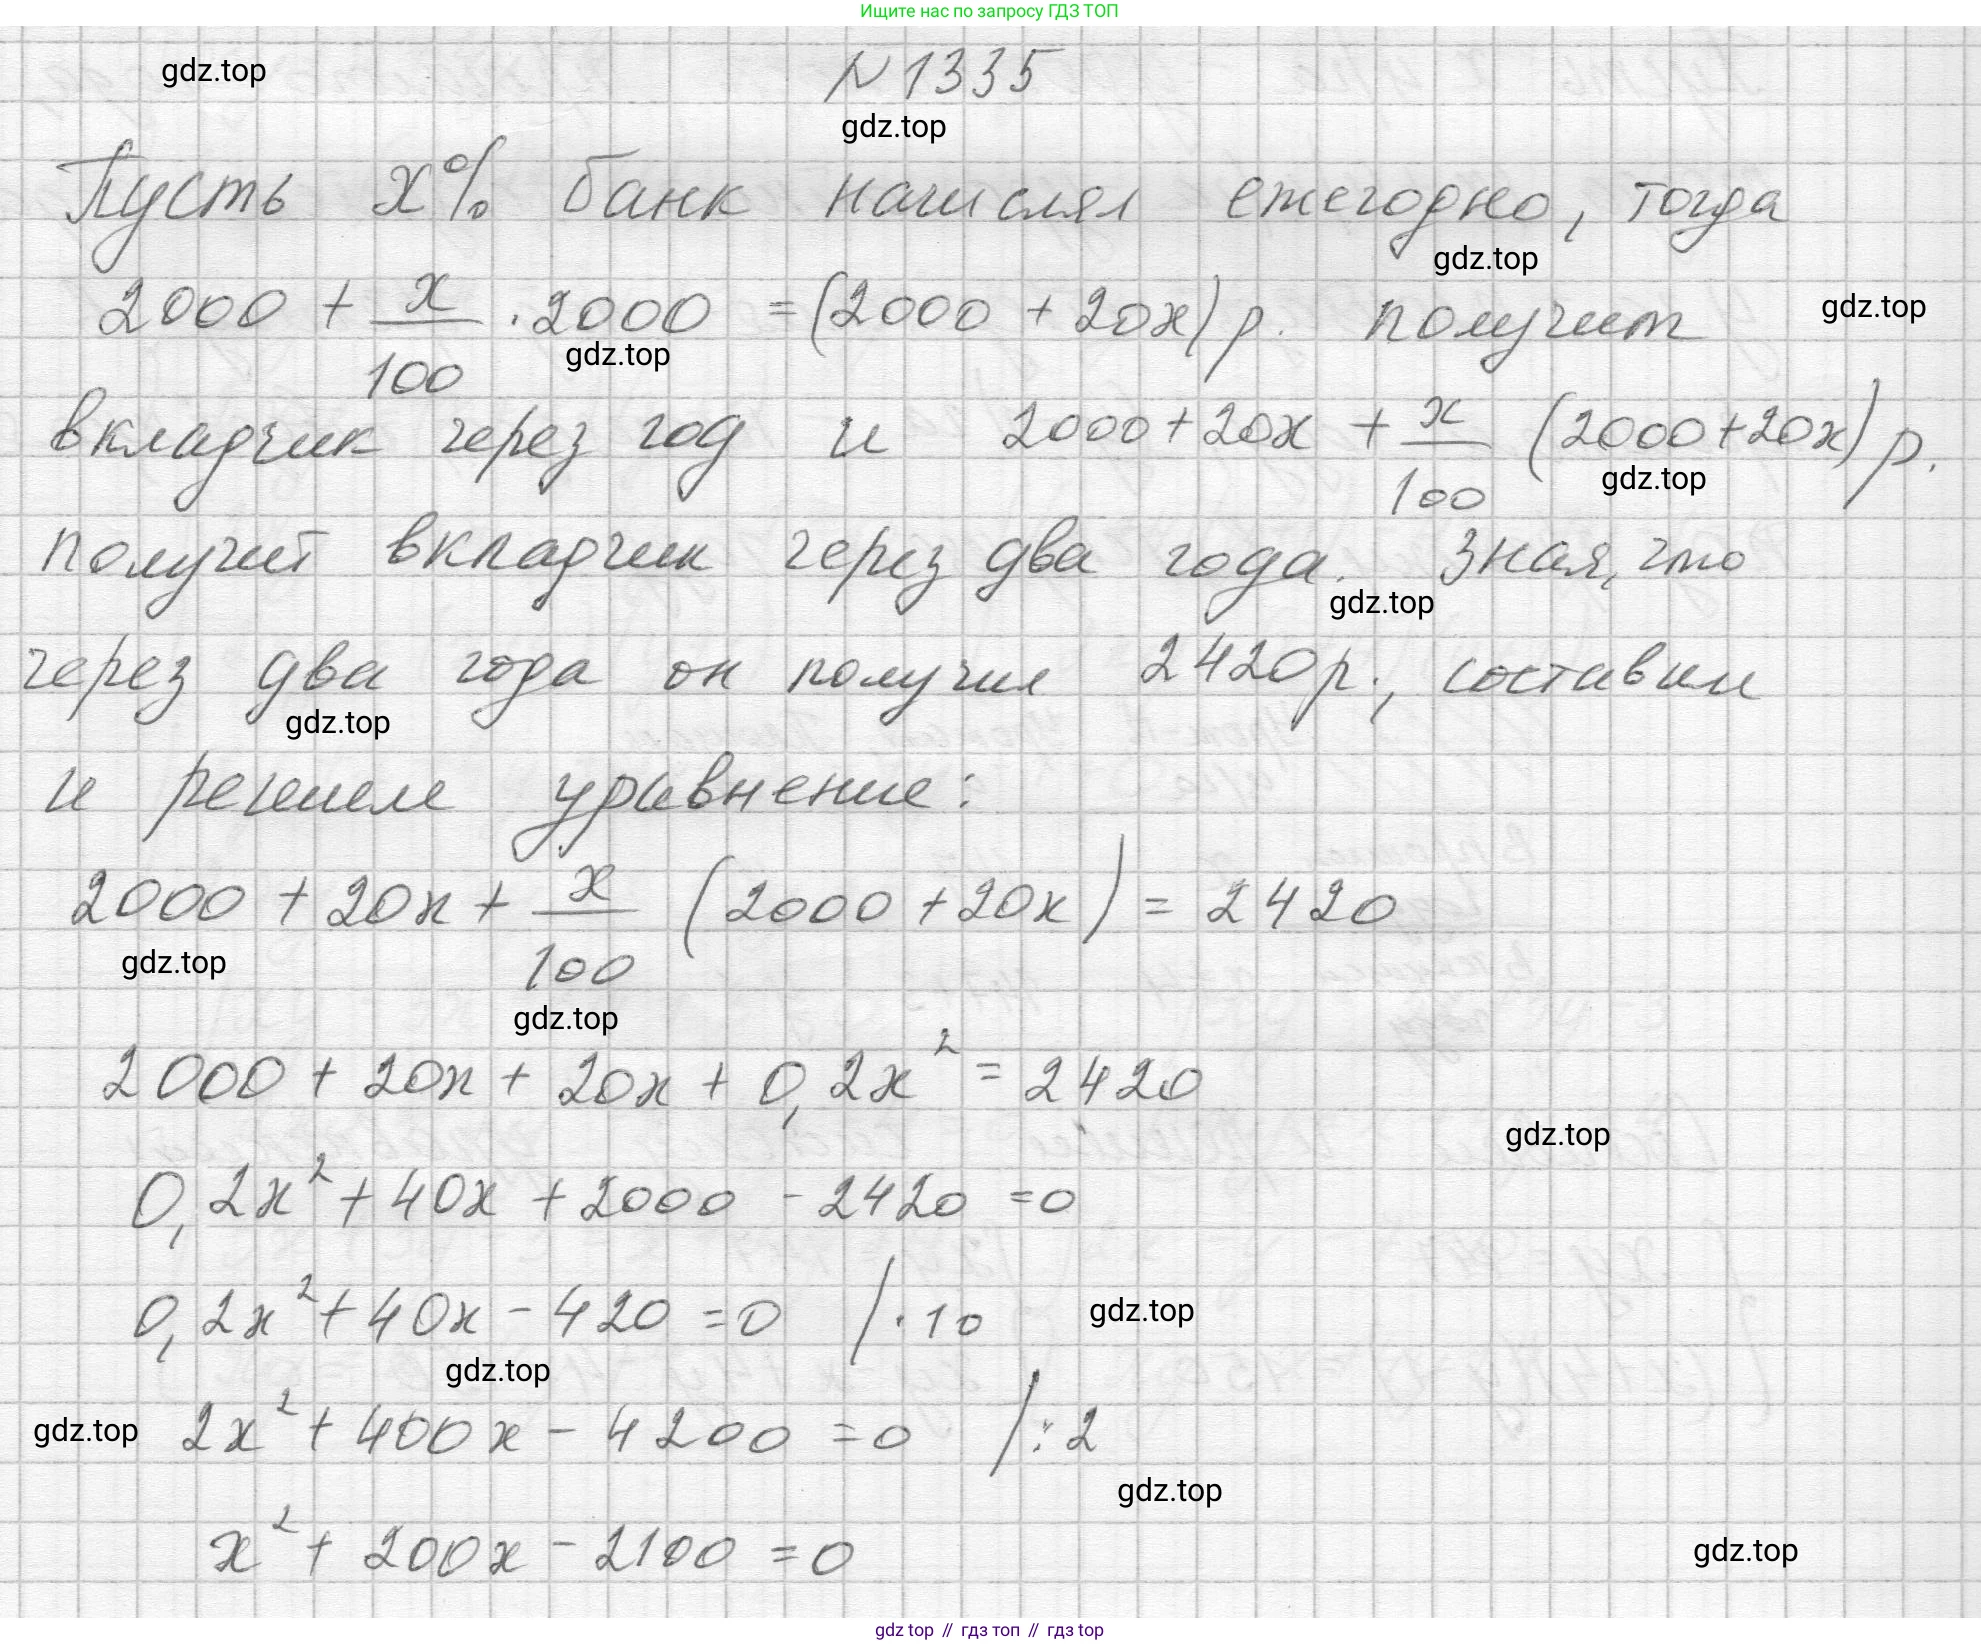 Ищите нас по запросу ГДЗ ТОП
gdz.top
N 1335
gdz.top
Пусть x% банк начислял ежегодно, тогда
gdz.top
2000 + x/100 · 2000 = (2000 + 20x) р. получит
gdz.top
gdz.top
вкладчик через год и 2000 + 20x + x/100 (2000 + 20x) р.
gdz.top
получит вкладчик через два года. Зная, что
gdz.top
через два года он получил 2420 р., составим
gdz.top
и решим уравнение:
2000 + 20x + x/100 (2000 + 20x) = 2420
gdz.top
gdz.top
2000 + 20x + 20x + 0,2x² = 2420
gdz.top
0,2x² + 40x + 2000 - 2420 = 0
0,2x² + 40x - 420 = 0 | · 10
gdz.top
gdz.top
2x² + 400x - 4200 = 0 | : 2
gdz.top
gdz.top
x² + 200x - 2100 = 0
gdz.top
gdz top // гдз топ // гдз top